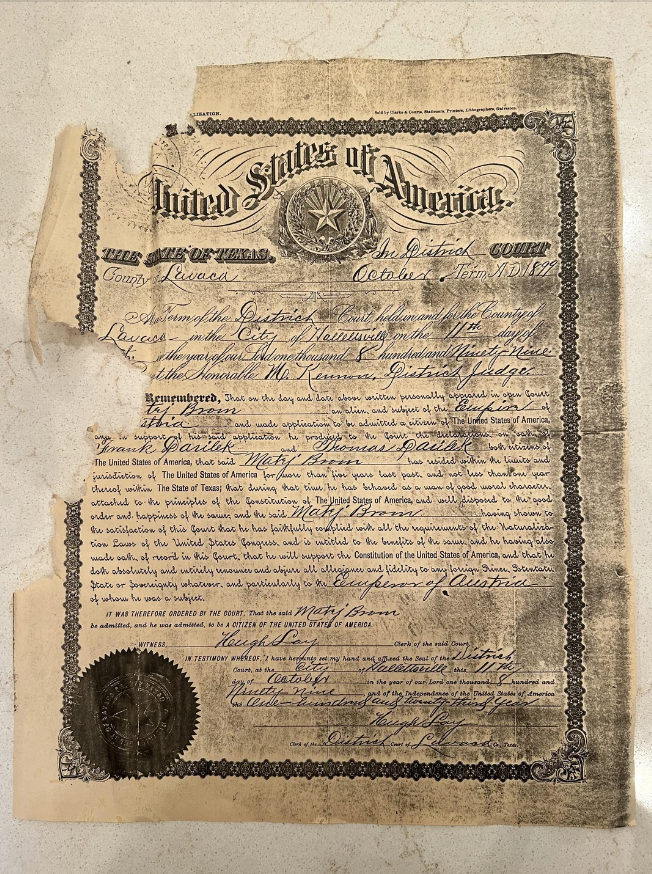 LIZATION. Sold by Clarke & Courts, Stationers, Printers, Lithographers, Galveston.
United States of America.
THE STATE OF TEXAS, In District COURT
County Lavaca October Term, A.D. 1899
At a Term of the District Court, held in and for the County of
Lavaca in the City of Hallettsville on the 11th day of
in the year of our Lord one thousand 8 hundred and Ninety Nine
the Honorable M. Kennon, District Judge
Remembered, That on the day and date above written personally appeared in open Court
Brom an alien, and subject of the Empire of
stria and made application to be admitted a citizen of The United States of America,
and in support of his said application he produced to the Court the declarations on oath of
Frank Darilek and Thomas Darilek both citizens of
The United States of America, that said Matj Brom has resided within the limits and
jurisdiction of The United States of America for more than five years last past, and not less than one year
thereof within The State of Texas; that during that time, he has behaved as a man of good moral character,
attached to the principles of the Constitution of The United States of America, and well disposed to the good
order and happiness of the same; and the said Matj Brom having shown to
the satisfaction of this Court that he has faithfully complied with all the requirements of the Naturaliza-
tion Laws of the United States Congress, and is entitled to the benefits of the same, and he having also
made oath, of record in this Court, that he will support the Constitution of the United States of America, and that he
doth absolutely and entirely renounce and abjure all allegiance and fidelity to any foreign Prince, Potentate,
State or Sovereignty whatever, and particularly to the Emperor of Austria
of whom he was a subject.
IT WAS THEREFORE ORDERED BY THE COURT, That the said Matj Brom
be admitted, and he was admitted, to be A CITIZEN OF THE UNITED STATES OF AMERICA.
WITNESS, Hugh Lay Clerk of the said Court.
IN TESTIMONY WHEREOF, I have hereunto set my hand and affixed the Seal of the District
Court, at the City of Hallettsville this 11th
day of October in the year of our Lord one thousand, 8 hundred and
Ninety nine and of the Independence of the United States of America
the One hundred and twenty third Year
Hugh Lay
Clerk of the District Court of Lavaca Co., Texas.